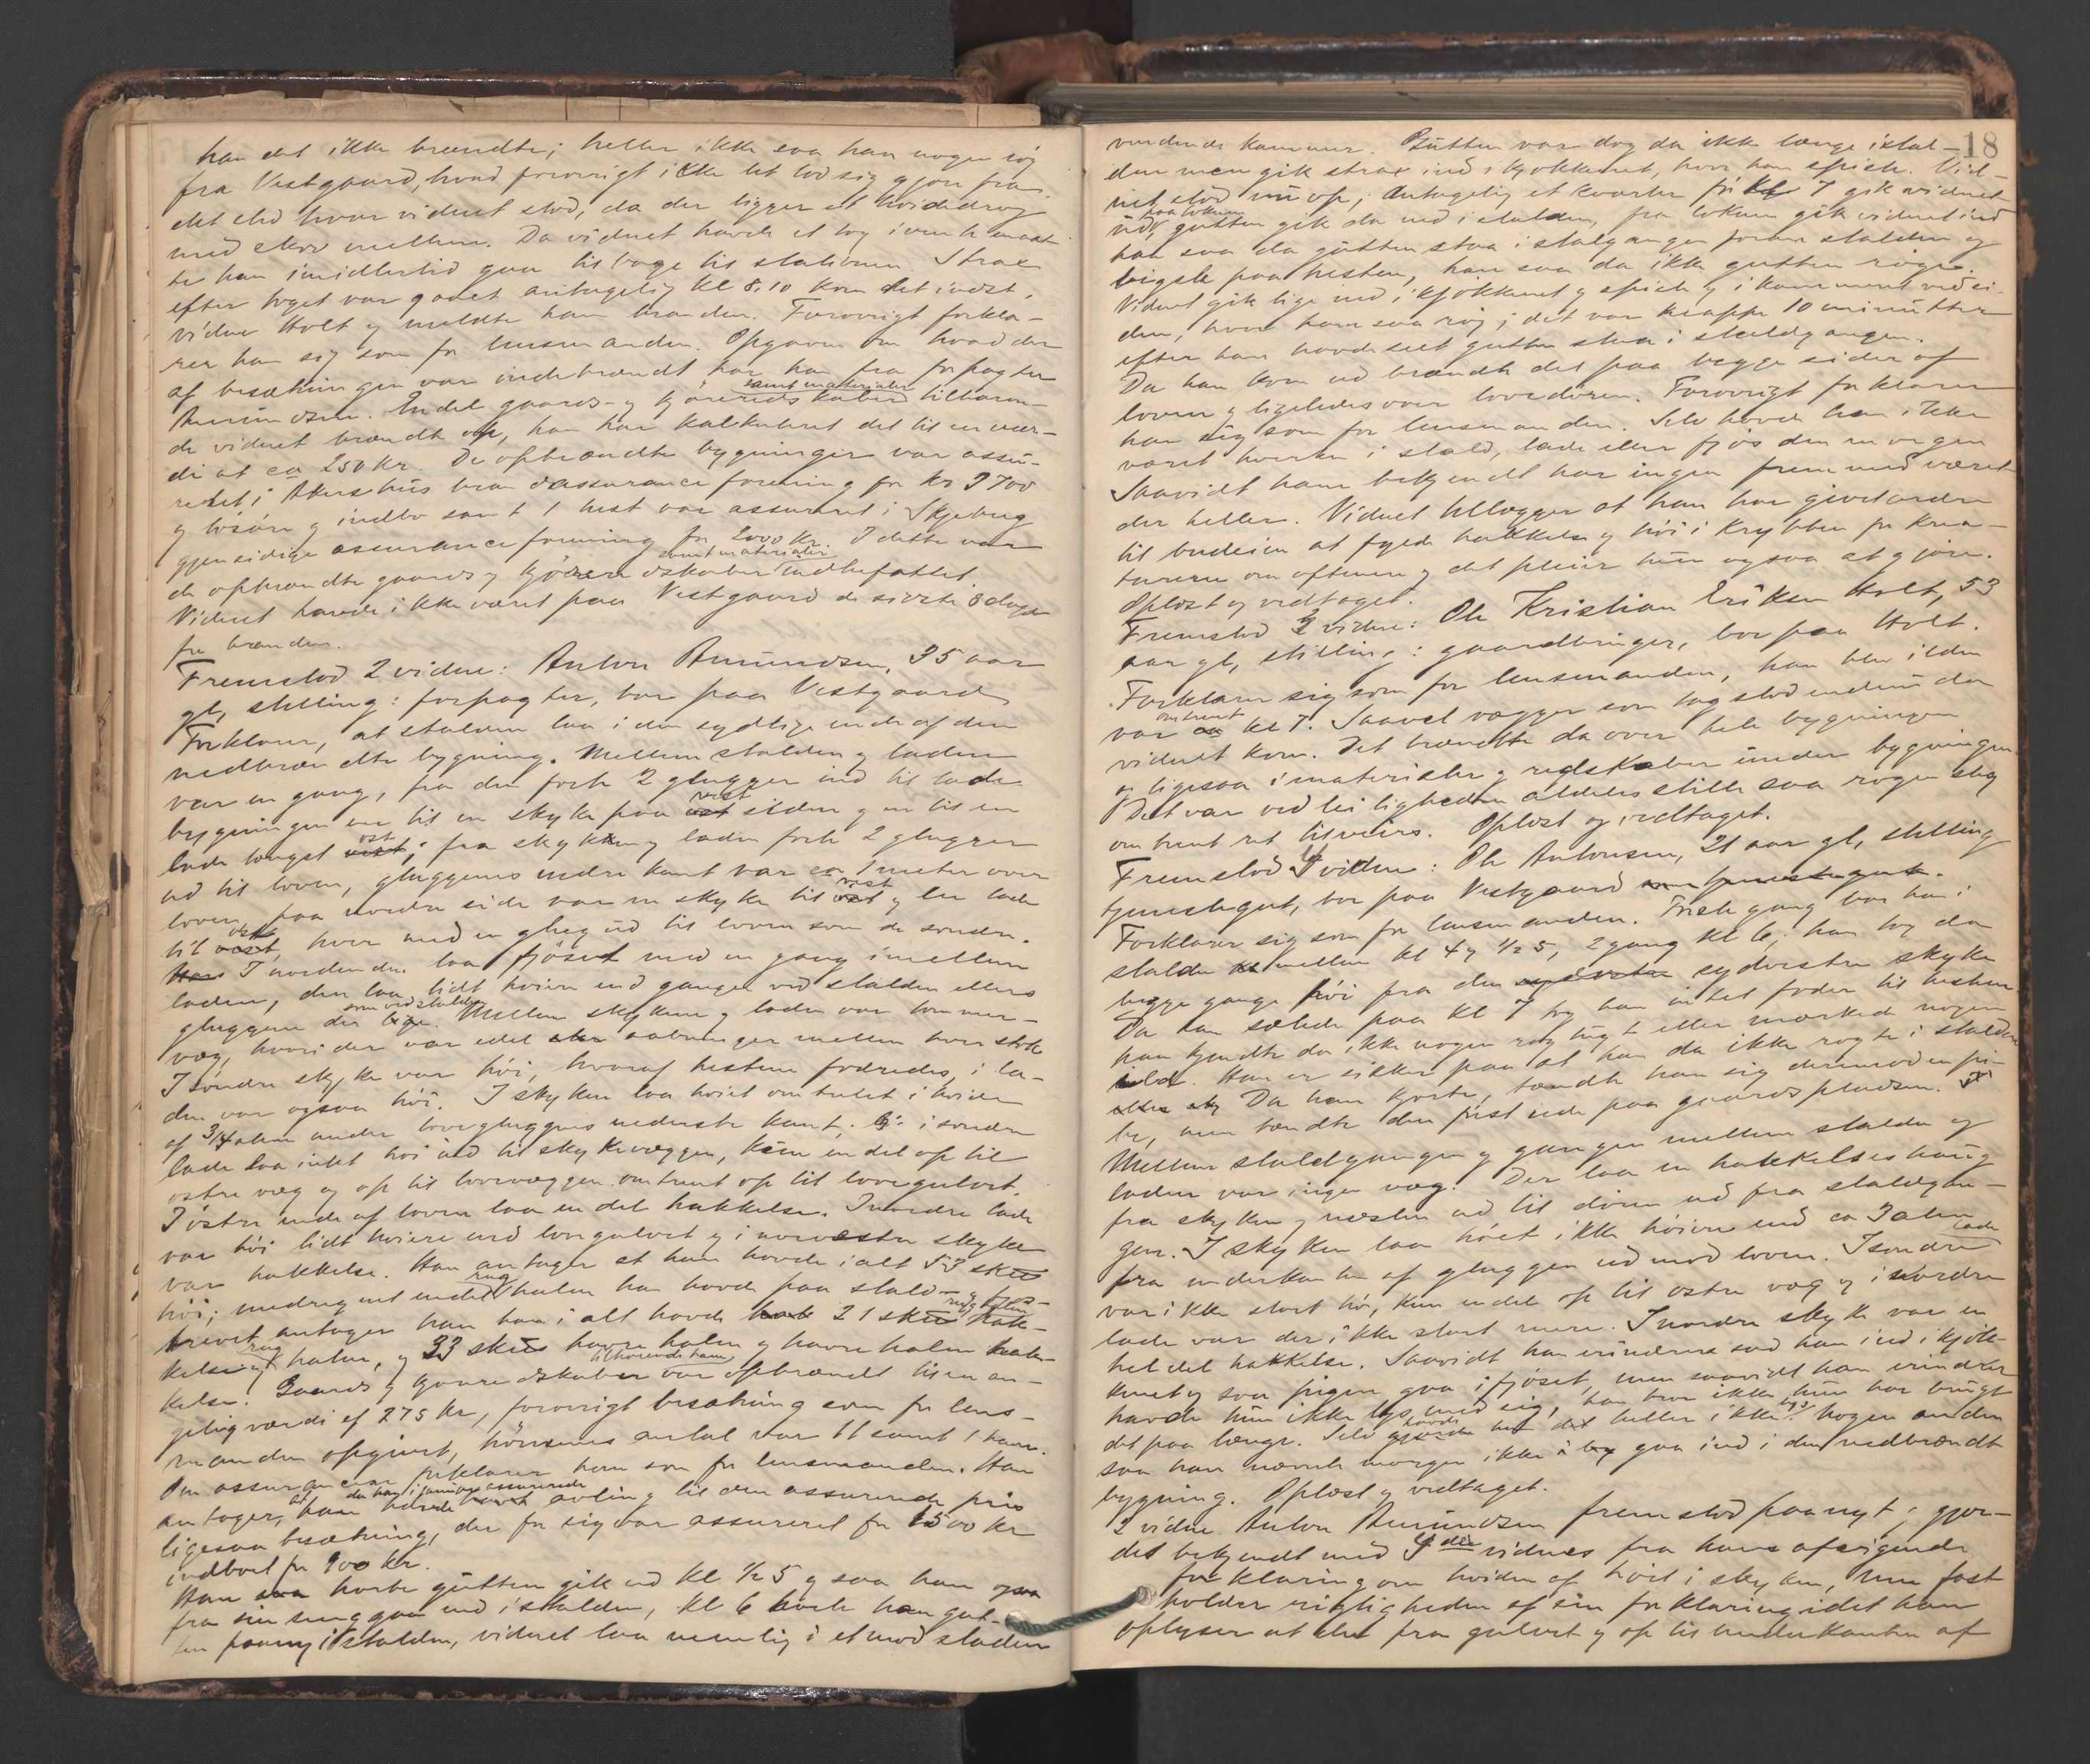 han det ikke brændte; heller ikke saa han nogen røg
fra Vestgaard, hvad forøvrigt ikke let lod sig gjøre fra
det sted hvor vidnet stod, da der ligger et høidedrag
med skov mellem. Da vidnet havde et tog ivente maat-
te han imidlertid gaa tilbage til stationen. Strax
efter toget var gaaet antagelig kl 8.10 kom det
vidne Holt og meldte ham branden. Forøvrigt forkla-
rer han sig som for lensmanden. Opgaven om hvad der
af besætningen var indebrændt har han fra forpagter
Amundsen. Endel gaards- og kjøreredskaber samt materialer tilhøren-
de vidnet brændte op, han har kalkuleret det til en vær-
di at ca 250 kr. De opbrændte bygninger var assu-
reret i Akershus brandassuranceforening for kr 3700
og løsøre og indbo samt 1 hest var assureret i Skjeberg
gjensidige assuranceforening for 2000 kr. I dette var
de opbrændte gaards og kjøreredskaber samt materialer indbefattet.
Vidnet havde ikke været paa Vestgaard de sidste 8 dage
før branden.
Fremstod 2 vidne: Anton Amundsen, 35 aar
gl, stilling: forpagter, bor paa Vestgaard
Forklarer, at stalden laa i den sydlige ende af den
nedbrændte bygning. Mellem stalden og laden
var en gang, fra den førte 2 glugger ind til lade
bygningen en til en skykke paa vest siden og en til en
lade længst øst; fra skykken og laden førte 2 glugger
ud til loven, gluggenes nedre kant var ca 1 meter over
loven, paa nordre side var en skykke til vest og en lade
til øst, hver med en glug ud til loven som de søndre.
I nordenden laa fjøset med en gang imellem
laden, den laa lidt høiere end gangen ved stalden ellers
gluggene der som ved stalden. Mellem skykken og laden var tømmer-
væg, hvori der var endel aabninger mellem hver stok
I søndre skykke var høi, hvoraf hestene fodredes, i la-
den var ogsaa høi. I skykken laa høiet omtrent i høide
af 3/4 alen under lovegluggens nederste kant, i søndre
lade laa intet høi ind til skykkevæggen, kun endel op til
østre væg og op til lovevæggen omtrent op til lovegulvet.
I østre ende af loven laa en del hakkelse. I nordre lade
var høi lidt høiere end lovgulvet og i nordvestre skykke
var hakkelse. Han antager at han havde ialt 53 sk℔
høi; medregnet endel rug halm han havde paa stald- og fjøs-
antager han han i alt havde 21 sk℔ rug halm hak-
kelse og rug halm, og 33 sk℔ havre halm og havre halm hak-
kelse. Gaards og kjøreredskaber tilhørende ham var opbrændt til en an-
gelig værdi af 275 kr, forøvrigt besætning som for lens-
manden opgivet, hønsenes antal var 11 samt 1 hane.
Om assurancen forklarer han som for lensmanden. Han
antager, at han da han i januar assurerede havde avling til den assurerede pris
ligesaa besætning, der for sig var assureret for 1500 kr
indboet for 900 kr.
Han hørte gutten gik ud kl 1/2 5 og saa han ogsaa
fra sin seng gaa ind i stalden, kl 6 hørte han gut-
ten paany i stalden, vidnet laa nemlig i et mod stalden
18
vendende kammer. Gutten var dog da ikke længe i stal-
den men gik strax ind i kjøkkenet, hvor han spiste. Vid-
net stod nu op; antagelig et kvarter før kl 7 gik vidnet
ud paa lokum, gutten gik da ned i stalden, fra lokum gik vidnet ind
han saa da gutten staa i stalgangen foran stalden og
børste paa hesten, han saa da ikke gutten røge.
Vidnet gik lige ind i kjøkkenet og spiste og i kammeret ved si-
den, hvor han saa røg; det var knappe 10 minutter
efter han havde seet gutten staa i staldgangen.
Da han kom ud brændte det paa begge sider af
loven og ligeledes over lovedøren. Forøvrigt forklarer
han sig som for lensmanden. Selv havde han ikke
været hverken i stald, lade eller fjøs den morgen
Saavidt ham bekjendt har ingen fremmed været
der heller. Vidnet tillægger at han har givet ordre
til budeien at fylde hakkelse og høi i krybben for krea-
turene om aftenen og det pleier hun ogsaa at gjøre.
Oplæst og vedtaget.
Fremstod 3 vidne: Ole Kristian Eriksen Holt, 53
aar gl, stilling: gaardbruger, bor paa Holt.
Forklarer sig som for lensmanden, han blev ilden
var omtrent kl 7. Saavel vægger som tag stod endnu da
vidnet kom. Det brændte da over hele bygningen
og ligesaa i materialer og redskaber under bygningen.
Det var ved leiligheden aldeles stille saa røgen steg
omtrent ret tilveirs. Oplæst og vedtaget.
Fremstod 4 vidne: Ole Antonsen, 21 aar gl, stilling
tjenestegut, bor paa Vestgaard
Forklarer sig som for lensmanden. Første gang var han i
stalden mellem kl 4 og 1/2 5, 2 gang kl 6; han tog da
begge gange høi fra den syderste skykke
Da han sælede paa kl 7 tog han intet foder til hestene
han kjendte da ikke nogen røglugt eller mærkede nogen
ild. Han er sikker paa at han da ikke røgte i stalden
Da han kjørte, tændte han sig derimod en pi-
be, men tændte den først ude paa gaardspladsen.
Mellem staldgangen og gangen mellem stalden og
laden var ingen væg. Der laa en hakkelseshaug
fra skykken og næsten ud til døren ud fra staldgan-
gen. I skykken laa høiet ikke høiere end ca 3 alen
fra underkanten af gluggen ud mod loven. I søndre lade
var ikke stort hø, kun endel op til østre væg og i nordre
lade var der ikke stort mere. I nordre skykke var en
hel del hakkelse. Saavidt han erindrer sad han ind i kjøk-
kenet og saa pigen gaa i fjøset, men saavidt han erindrer
havde hun ikke lys med sig, han tror ikke hun har brugt
det paa længe. Selv havde han heller ikke lys. Nogen anden
saa han nævnte morgen ikke gaa ind i den nedbrændte
bygning. Oplæst og vedtaget.
2 vidne Anton Amundsen fremstod paanyt; gjor-
des bekjendt med 4de vidnes fra hans afvigende
forklaring om høiden af høiet i skykken, men fast
holder rigtigheden af sin forklaring idet han
oplyser at der fra gulvet og op til underkanten af